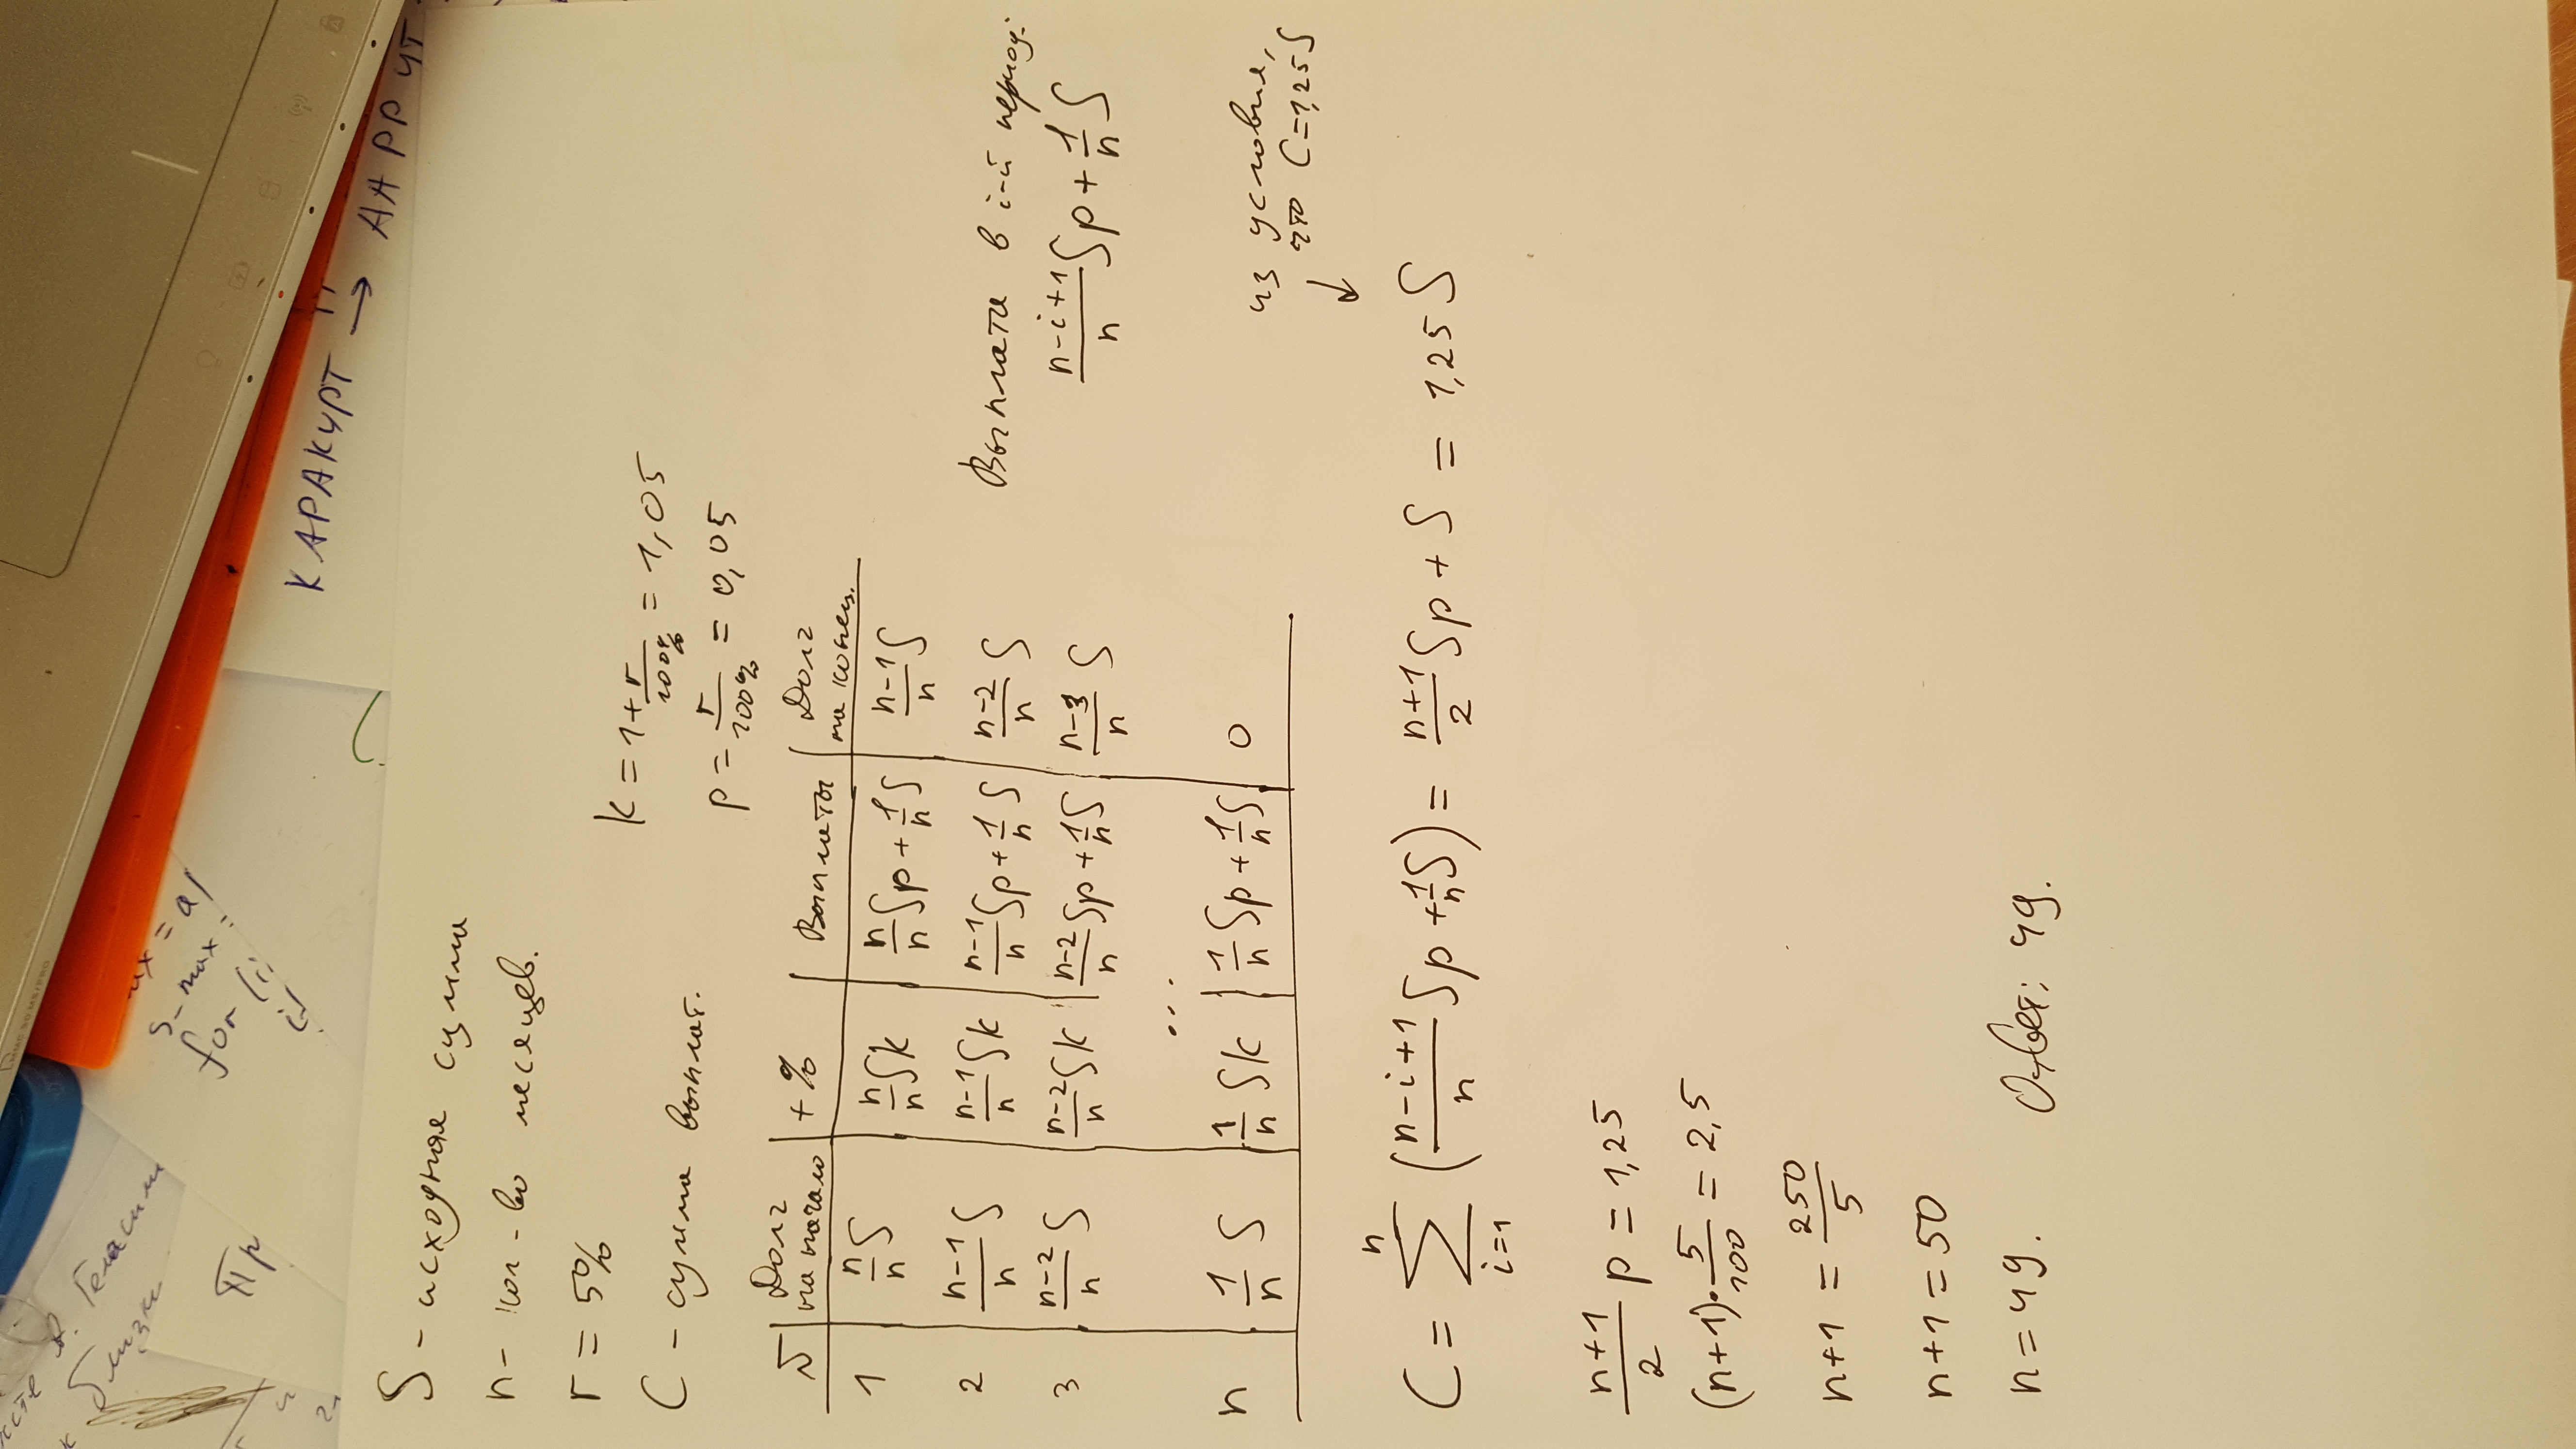 КАРАКУРТ → ААРРУТ
S - исходная сумма
n - кол-во месяцев.
r = 5%
C - сумма выплат.
k = 1 + r/100% = 1,05
p = r/100% = 0,05
№ | Долг на начало | +% | Выплаты | Долг на конец.
1 | n/n S | n/n Sk | n/n Sp + 1/n S | n-1/n S
2 | n-1/n S | n-1/n Sk | n-1/n Sp + 1/n S | n-2/n S
3 | n-2/n S | n-2/n Sk | n-2/n Sp + 1/n S | n-3/n S
...
n | 1/n S | 1/n Sk | 1/n Sp + 1/n S | 0
Выплата в i-й период:
n-i+1/n Sp + 1/n S
из условия,
что C = 1,25 S
↓
C = n∑i=1 (n-i+1/n Sp + 1/n S) = n+1/2 Sp + S = 1,25 S
n+1/2 p = 1,25
(n+1)·5/100 = 2,5
n+1 = 250/5
n+1 = 50
n = 49.
Ответ: 49.
s-max:
for (i
πр
близки